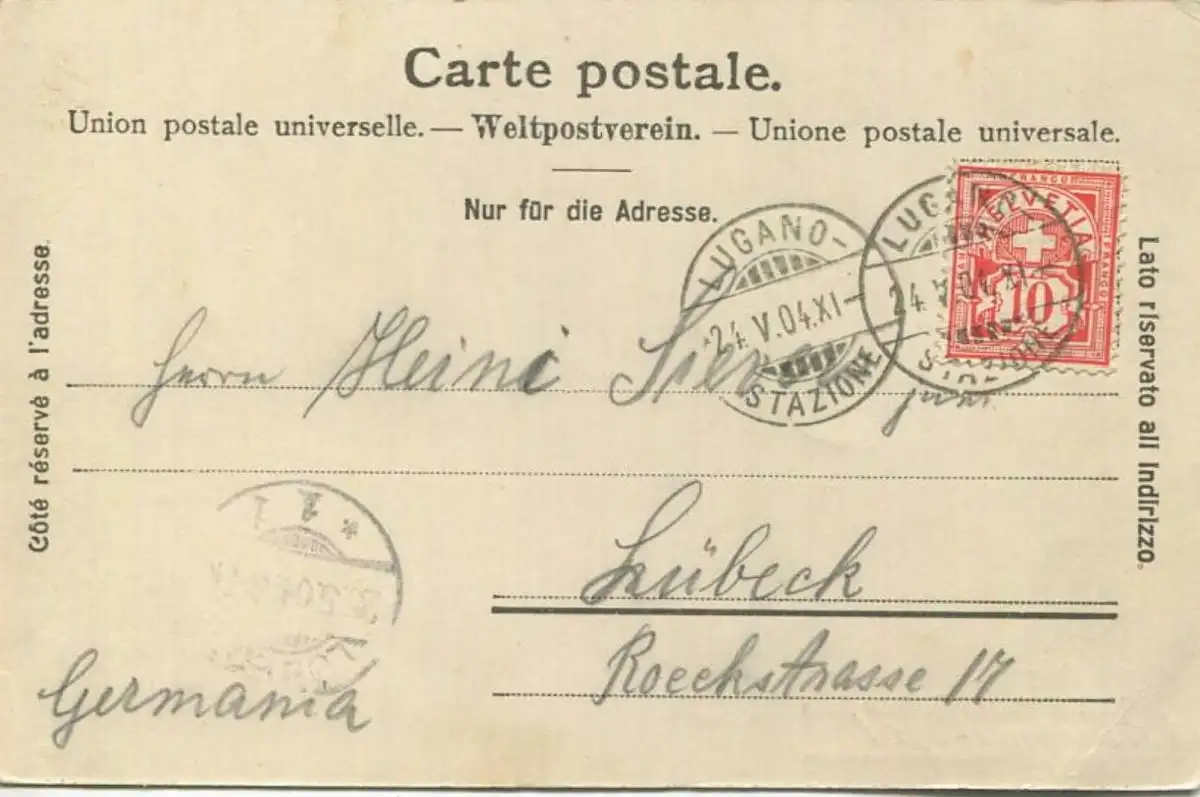 Carte postale.
Union postale universelle. — Weltpostverein. — Unione postale universale.
Nur für die Adresse.
Côté réservé à l'adresse.
Lato riservato all Indirizzo.
FRANCO
HELVETIA
10
LUGANO-
24.V.04.XI-
STAZIONE
LUGANO-
24.V.04.XI-
STAZIONE
Herrn Heini
Lübeck
Roeckstrasse 17
Germania
* 1